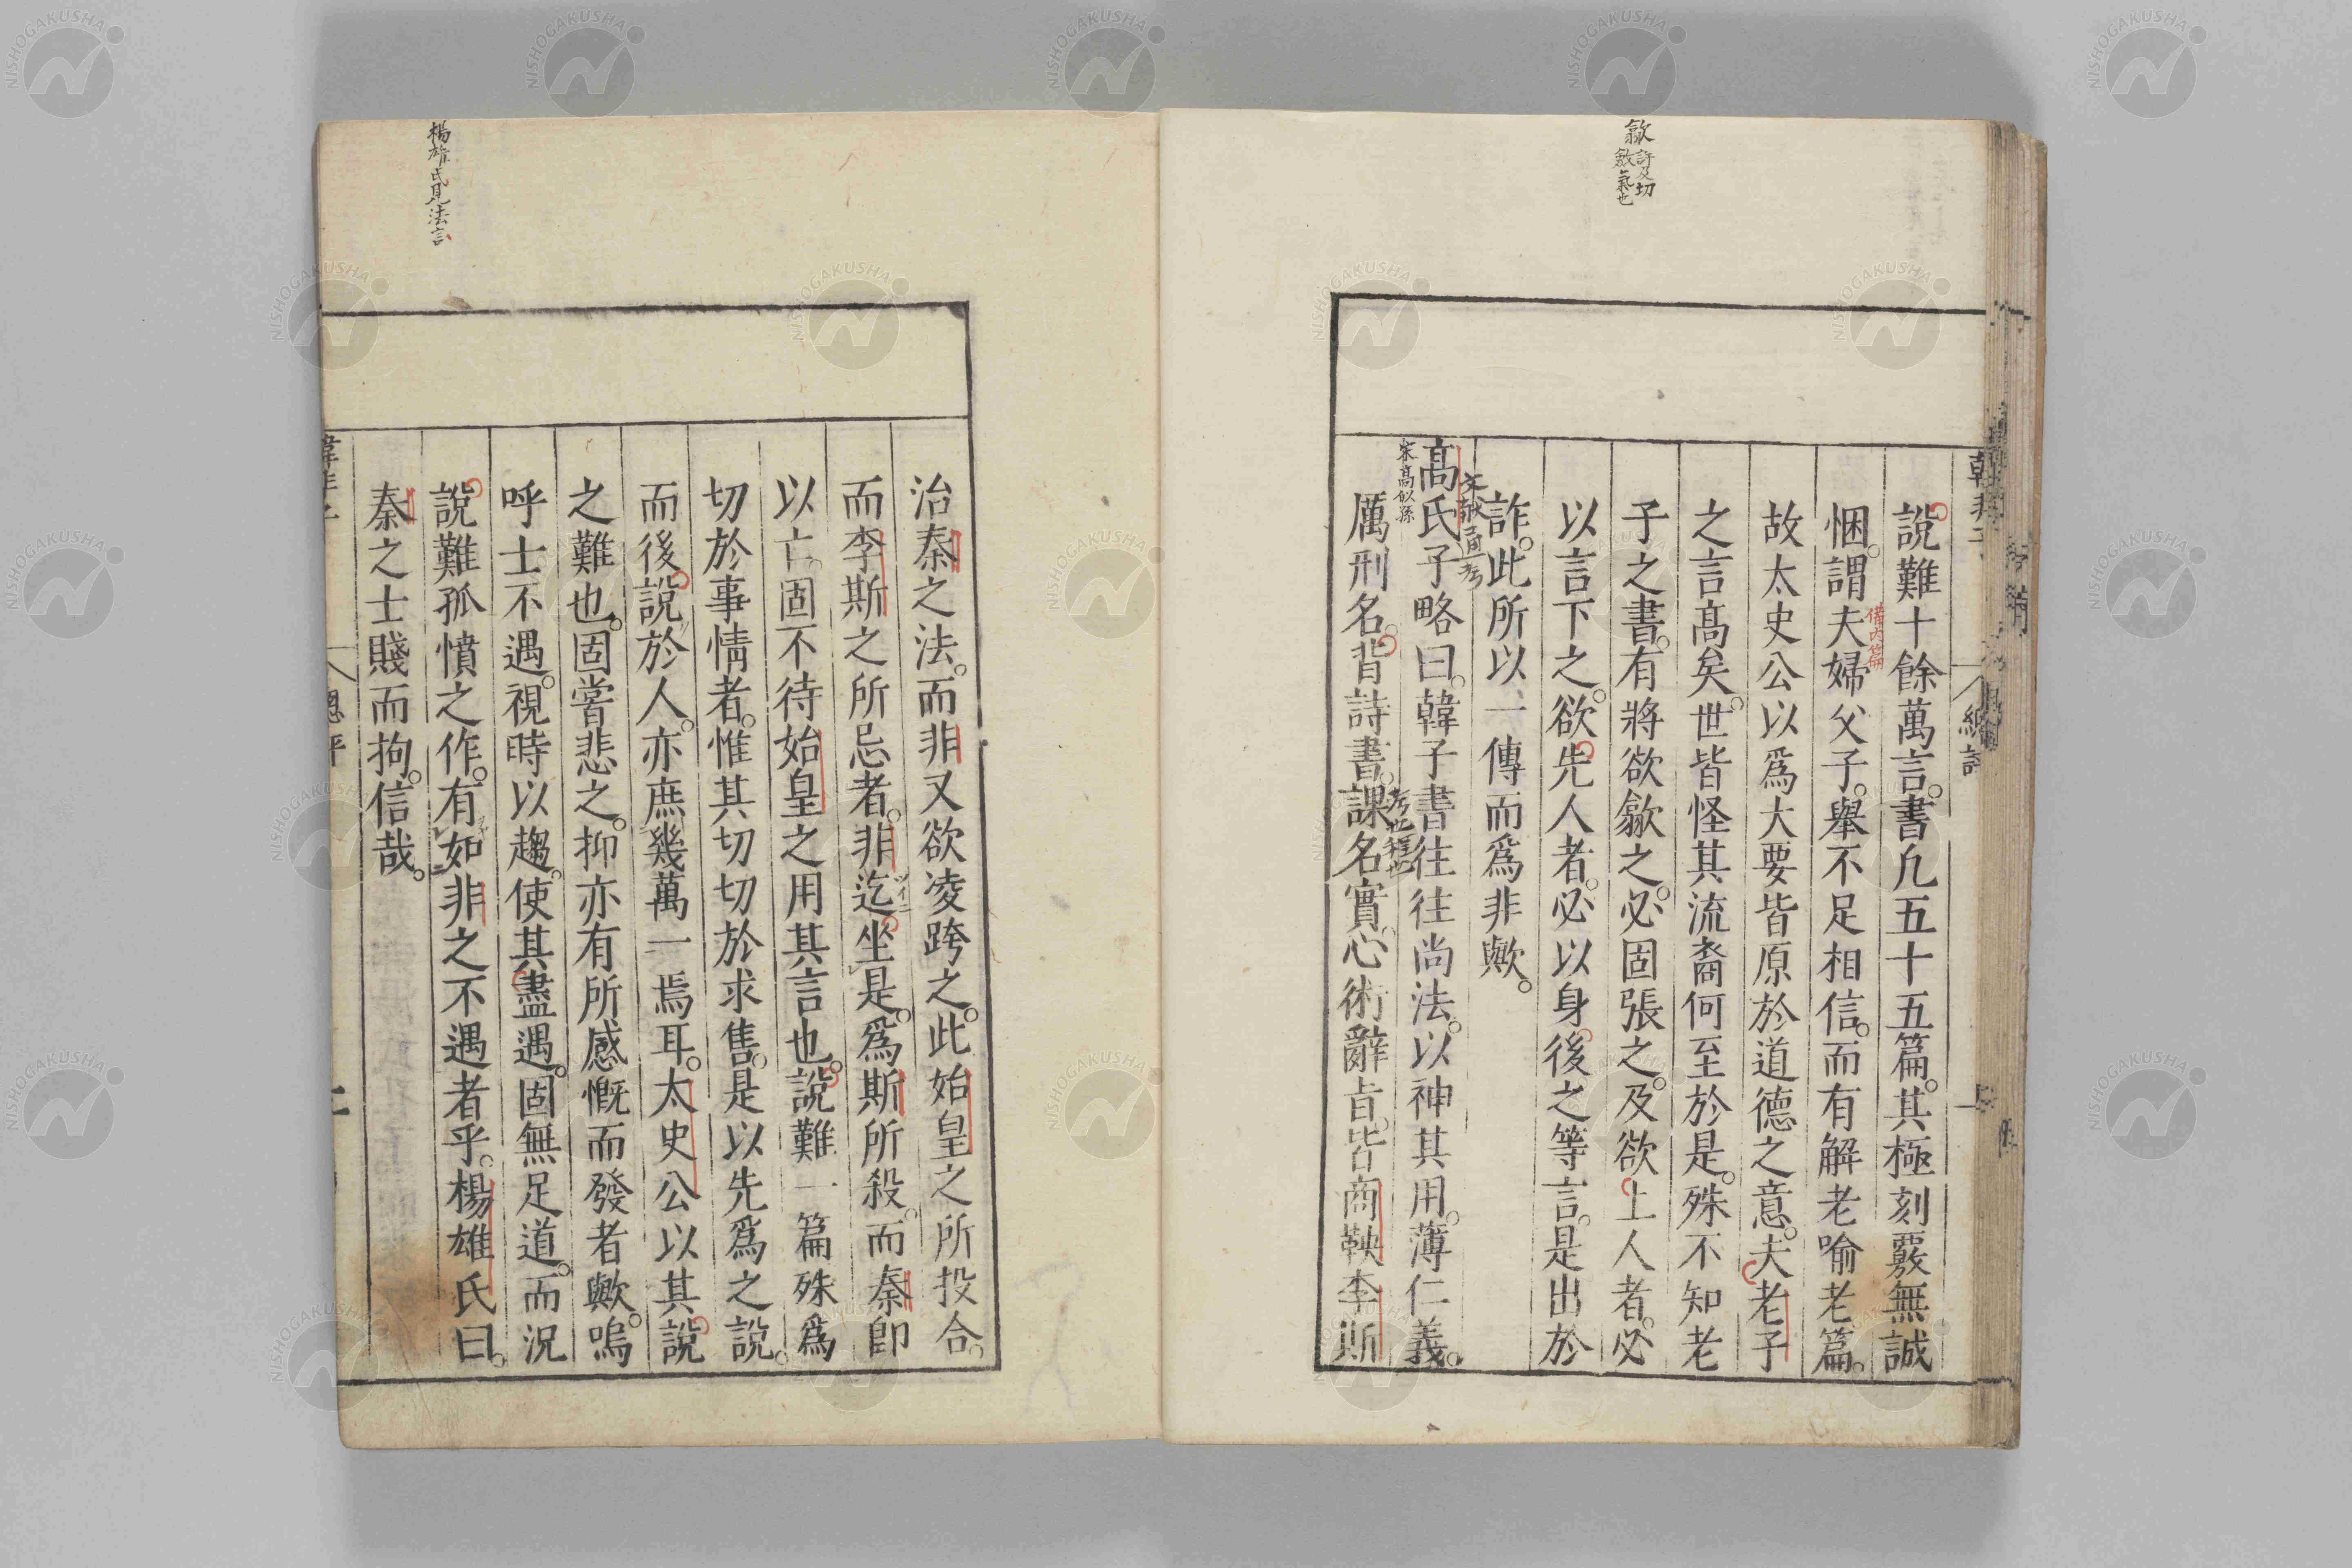 歙許及切
斂氣也
說難十餘萬言。書凢五十五篇。其極刻覈無誠
悃。謂夫婦父子。舉不足相信。而有解老喻老篇。
備内篇
故太史公以爲大要皆原於道德之意。夫老子
之言髙矣。世皆怪其流裔何至於是。殊不知老
子之書。有將欲歙之。必固張之。及欲上人者。必
以言下之。欲先人者。必以身後之等言。是出於
詐。此所以一傳而爲非歟。
髙氏子略曰。韓子書往往尚法。以神其用。薄仁義。
宋髙似孫
厲刑名。背詩書。課名實。心術辭旨。皆商鞅李斯
楊雄氏見法言
治秦之法。而非又欲凌跨之。此始皇之所投合。
而李斯之所忌者。非迄坐是。爲斯所殺。而秦卽
ツイニ
以亡。固不待始皇之用其言也。說難一篇殊爲
切於事情者。惟其切切於求售。是以先爲之說。
而後說於人。亦庶幾萬一焉耳。太史公以其說
之難也。固嘗悲之。抑亦有所感慨而發者歟。嗚
呼士不遇。視時以趨。使其盡遇。固無足道。而況
說難孤憤之作。有如非之不遇者乎。楊雄氏曰。
秦之士賤而拘。信哉。
NISHOGAKUSHA